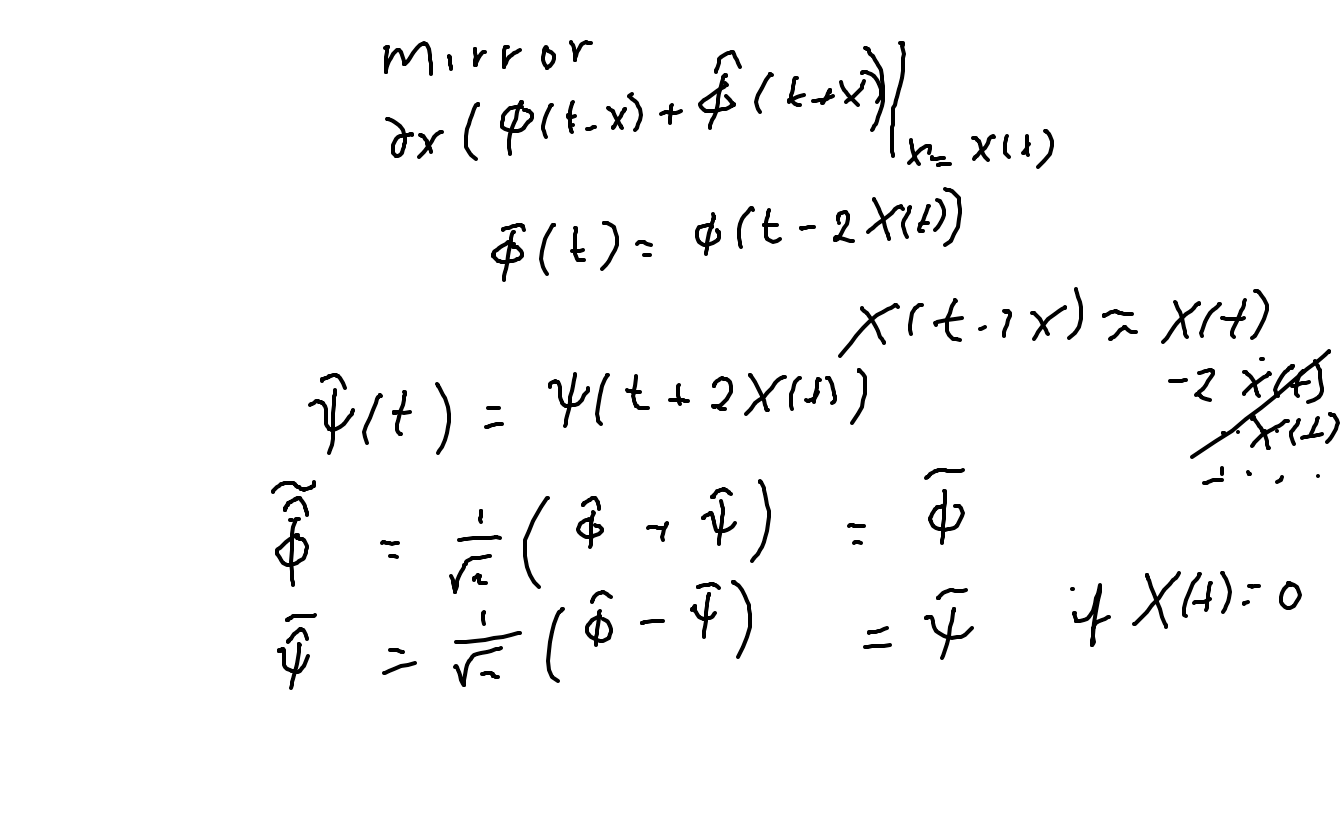 mirror
∂x ( ϕ(t-x) + ϕ̂ (t+x) ) |x = X(t)
ϕ̂ (t) = ϕ(t - 2X(t))
X(t-2x) ≈ X(t)
-2 Ẋ(t)
X(t)
+ ....
ψ̂(t) = ψ(t + 2X(t))
ϕ̂̃ = 1/√2 ( ϕ̂ + ψ̂ ) = ϕ̃
ψ̂̃ = 1/√2 ( ϕ̂ - ψ̂ ) = ψ̃ if X(t) = 0